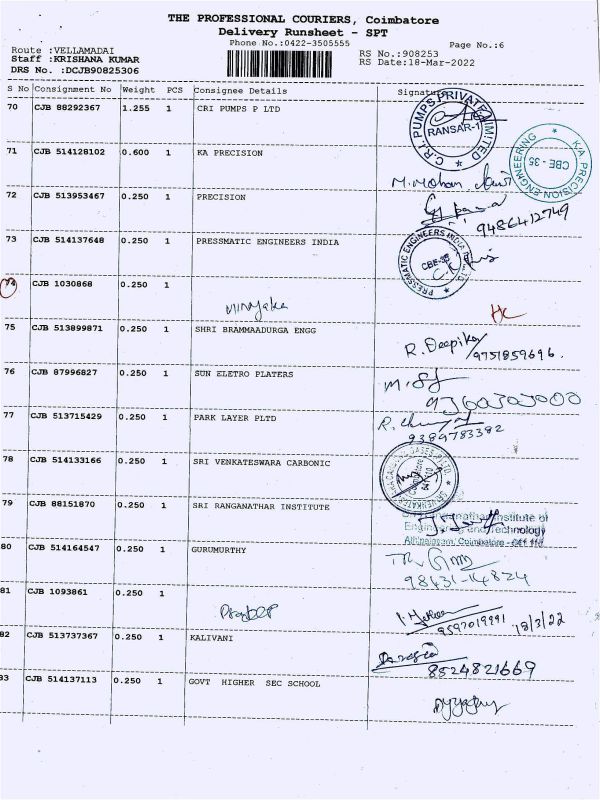 THE PROFESSIONAL COURIERS, Coimbatore
Delivery Runsheet - SPT
Phone No.:0422-3505555
Page No.:6
Route :VELLAMADAI
Staff :KRISHANA KUMAR
DRS No. :DCJB90825306
RS No.:908253
RS Date:18-Mar-2022
S No Consignment No Weight PCS Consignee Details Signature
70 CJB 88292367 1.255 1 CRI PUMPS P LTD
C.R.I. PUMPS PRIVATE LIMITED
RANSAR-1
71 CJB 514128102 0.600 1 KA PRECISION
K/A PRECISION ENGINEERING
CBE - 35
M. Mohan
72 CJB 513953467 0.250 1 PRECISION
9486412749
73 CJB 514137648 0.250 1 PRESSMATIC ENGINEERS INDIA
PRESSMATIC ENGINEERS INDIA
CJB 1030868 0.250 1
Vinayaka
75 CJB 513899871 0.250 1 SHRI BRAMMAADURGA ENGG
R. Deepika 9751859696.
76 CJB 87996827 0.250 1 SUN ELETRO PLATERS
77 CJB 513715429 0.250 1 PARK LAYER PLTD
9389783382
78 CJB 514133166 0.250 1 SRI VENKATESWARA CARBONIC
79 CJB 88151870 0.250 1 SRI RANGANATHAR INSTITUTE
Institute of
Technology
80 CJB 514164547 0.250 1 GURUMURTHY
98431-14824
81 CJB 1093861 0.250 1
9597019991 18/3/22
82 CJB 513737367 0.250 1 KALIVANI
8524821669
83 CJB 514137113 0.250 1 GOVT HIGHER SEC SCHOOL